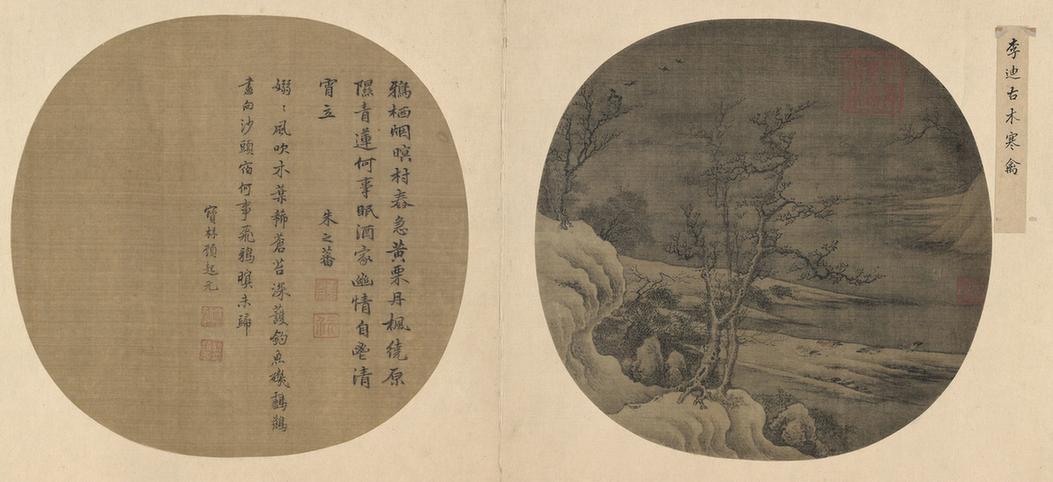 李迪古木寒禽
鴉栖烟暝村舂急黃栗丹楓繞原
隰青蓮何事眠酒家幽情自愛清
宵立
朱之蕃
嫋〻風吹木葉稀蒼苔深護釣魚磯鸕鷀
盡向沙頭宿何事飛鴉暝未歸
寶林顧起元